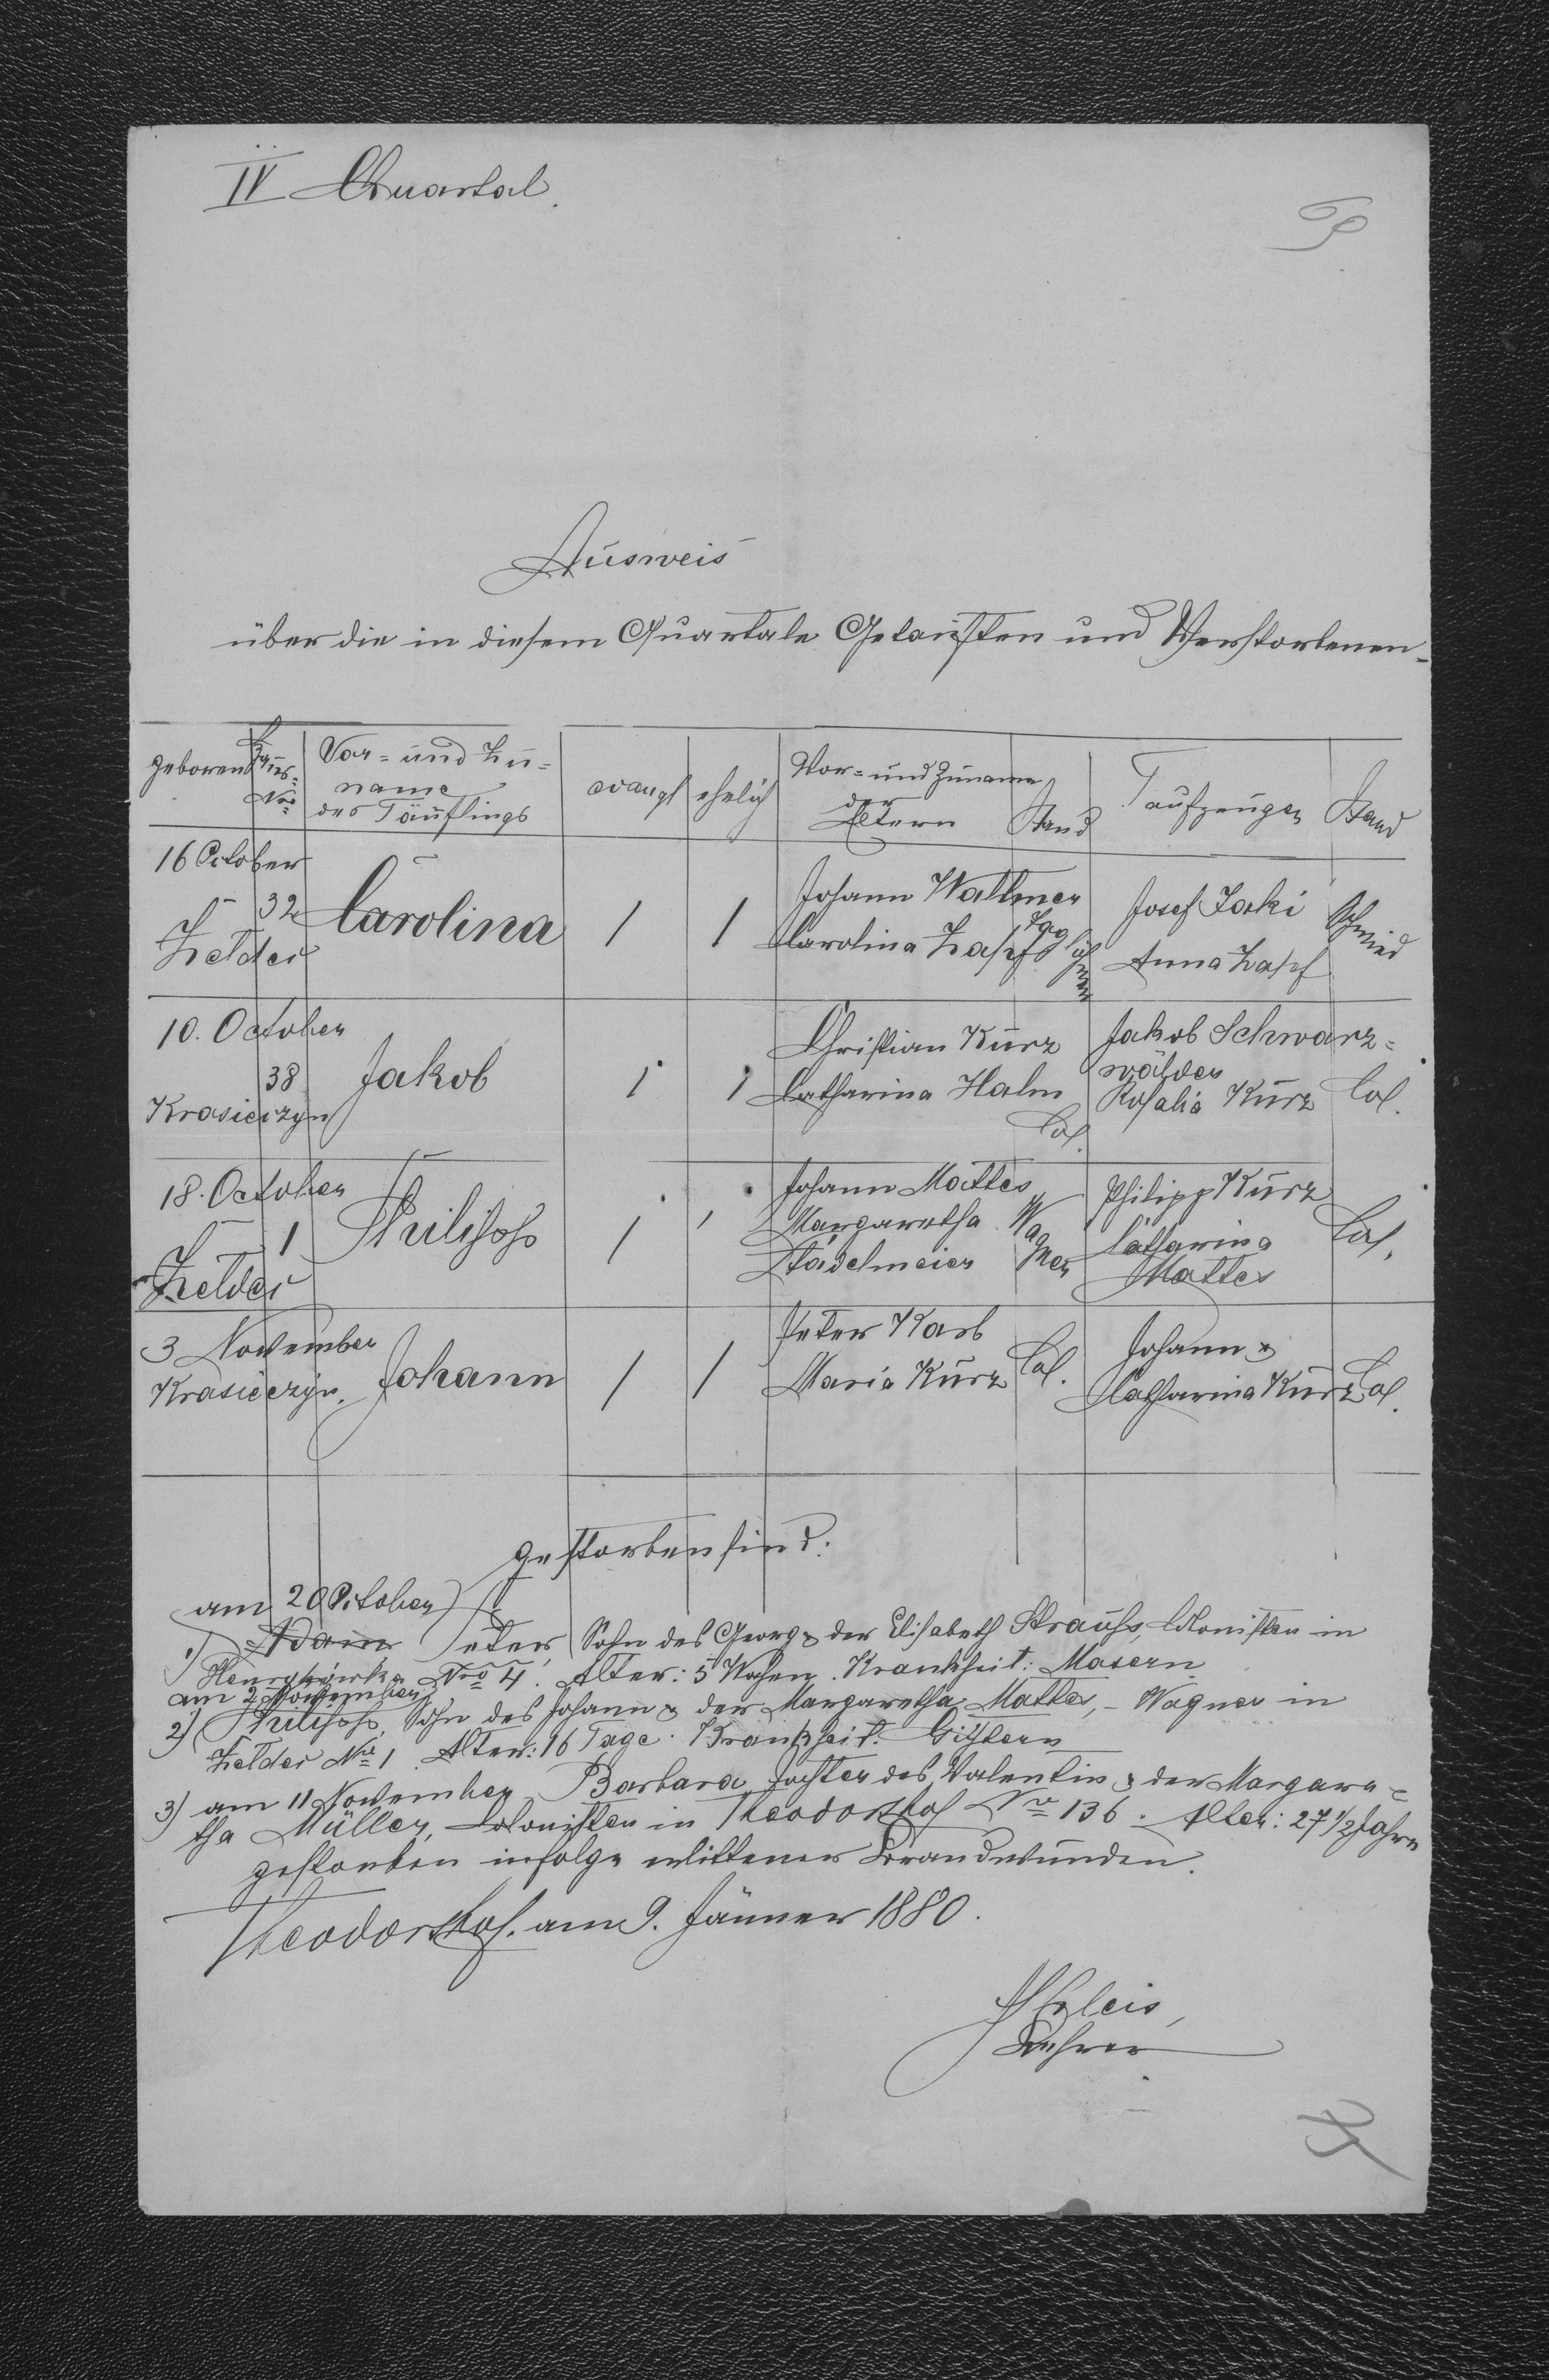 IV Quartal.
Ausweis
über die in diesem Quartale Getauften und Verstorbenen.
geboren Haus-Nro Vor- und Zuname des Täuflings evangl ehelich Vor- und Zuname der Eltern Stand Taufzeugen Stand
16 October
32 Carolina 1 1 Johann Wallmer Josef Schmied
Carolina Zapf Taglöhner
Anna Zapf
10. October
38 Jakob 1 1 Christian Kurz Jakob Schwarz-
wälder
Krasiczyn Catharina Halm Rosalia Kurz Col.
Col.
18. October Johann Mattes Philipp Kurz
1 Philipp 1 1 Margaretha Wagner Catharina Col.
Stadelmeier Mattes
3 November Peter Karb Johann &
Krasiczyn. Johann 1 1 Maria Kurz Col. Catharina Kurz Col.
gestorben sind:
am 20 October
1) Adam Peter, Sohn des Georg & der Elisabeth Strauss, Colonisten in
Nro 4. Alter: 5 Wochen. Krankheit: Masern
am 2 November
2) Philipp, Sohn des Johann & der Margaretha Mattes, - Wagner in
Nro 1. Alter: 16 Tage. Krankheit: Gichtern
3) am 11 November Barbara Tochter des Valentin & der Margare-
tha Müller, Colonisten in Theodorshof Nro 136. Alter: 27 1/2 Jahre
gestorben infolge erlittener Brandwunden.
Theodorshof. am 9. Jänner 1880.
Lehrer